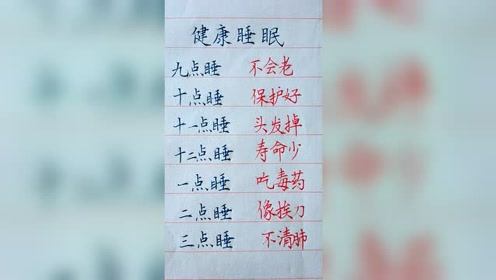 健康睡眠
九点睡 不会老
十点睡 保护好
十一点睡 头发掉
十二点睡 寿命少
一点睡 吃毒药
二点睡 像挨刀
三点睡 不清肺